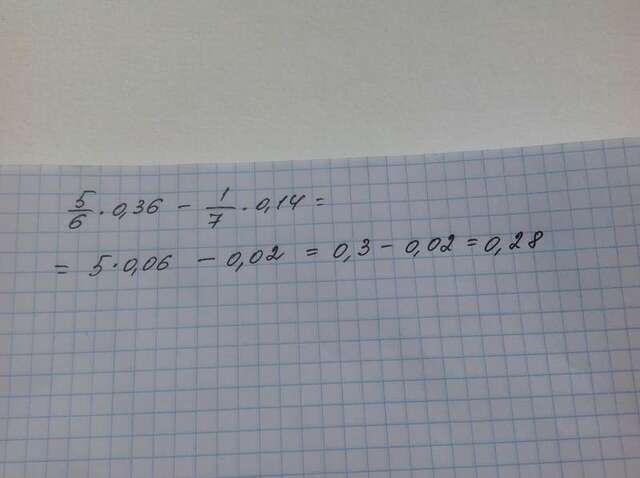 5/6 · 0,36 − 1/7 · 0,14 =
= 5 · 0,06 − 0,02 = 0,3 − 0,02 = 0,28